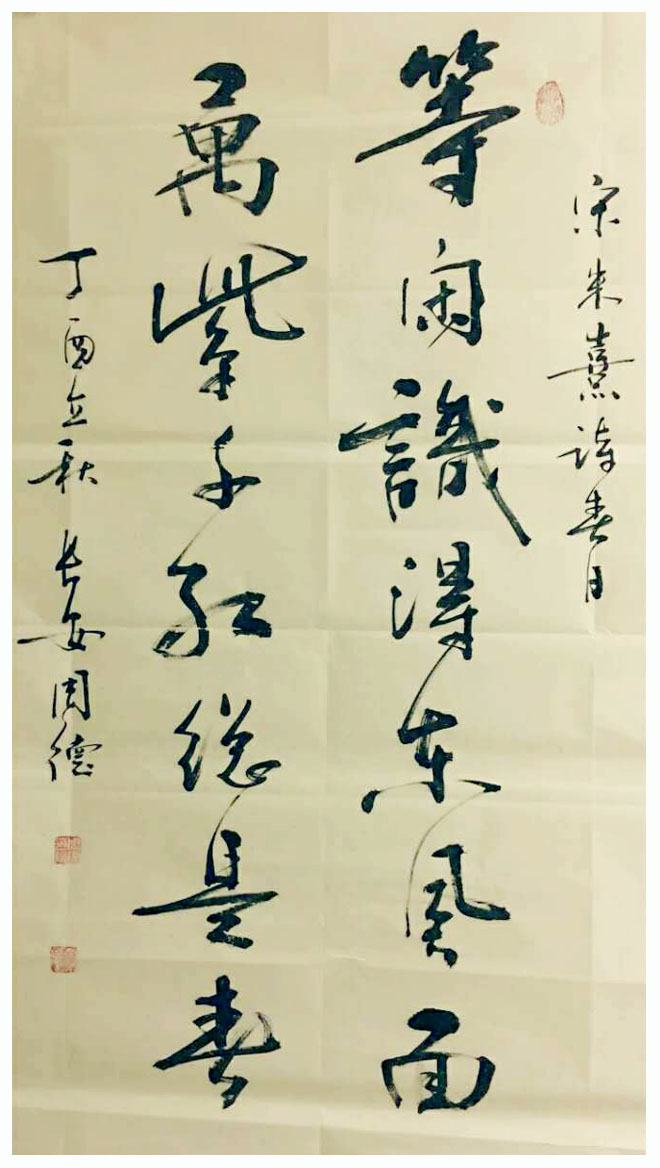 宋朱熹诗春日
等闲識得东風面
萬紫千红總是春
丁酉立秋 长安周德